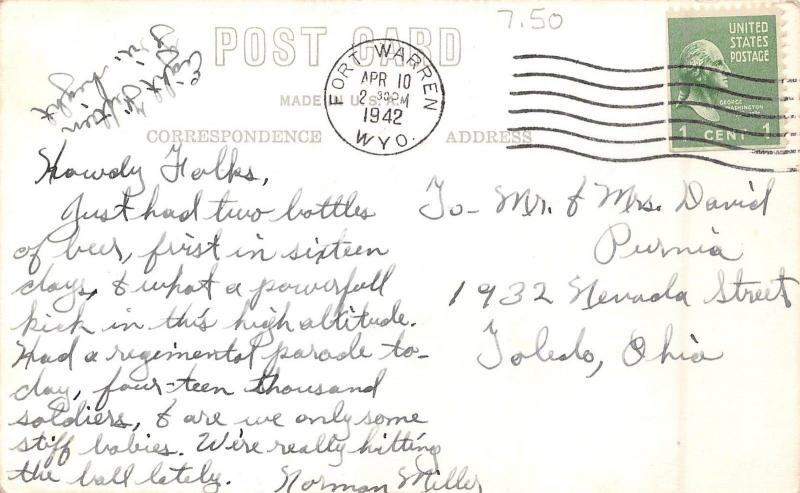 7.50
POST CARD
UNITED
STATES
POSTAGE
GEORGE
WASHINGTON
1 CENT 1
FORT WARREN
APR 10
2 30PM
1942
WYO.
MADE IN U.S.A.
CORRESPONDENCE
ADDRESS
Howdy Folks,
Just had two bottles
of beer, frist in sixteen
days, & what a powerfull
kick in this high altitude.
Had a regimental parade to-
day, four-teen thousand
soldiers, & are we only some
stiff babies. We're really hitting
the ball lately. Norman Miller
To- Mr. & Mrs. David
Purnia
1932 Nevada Street
Toledo, Ohio